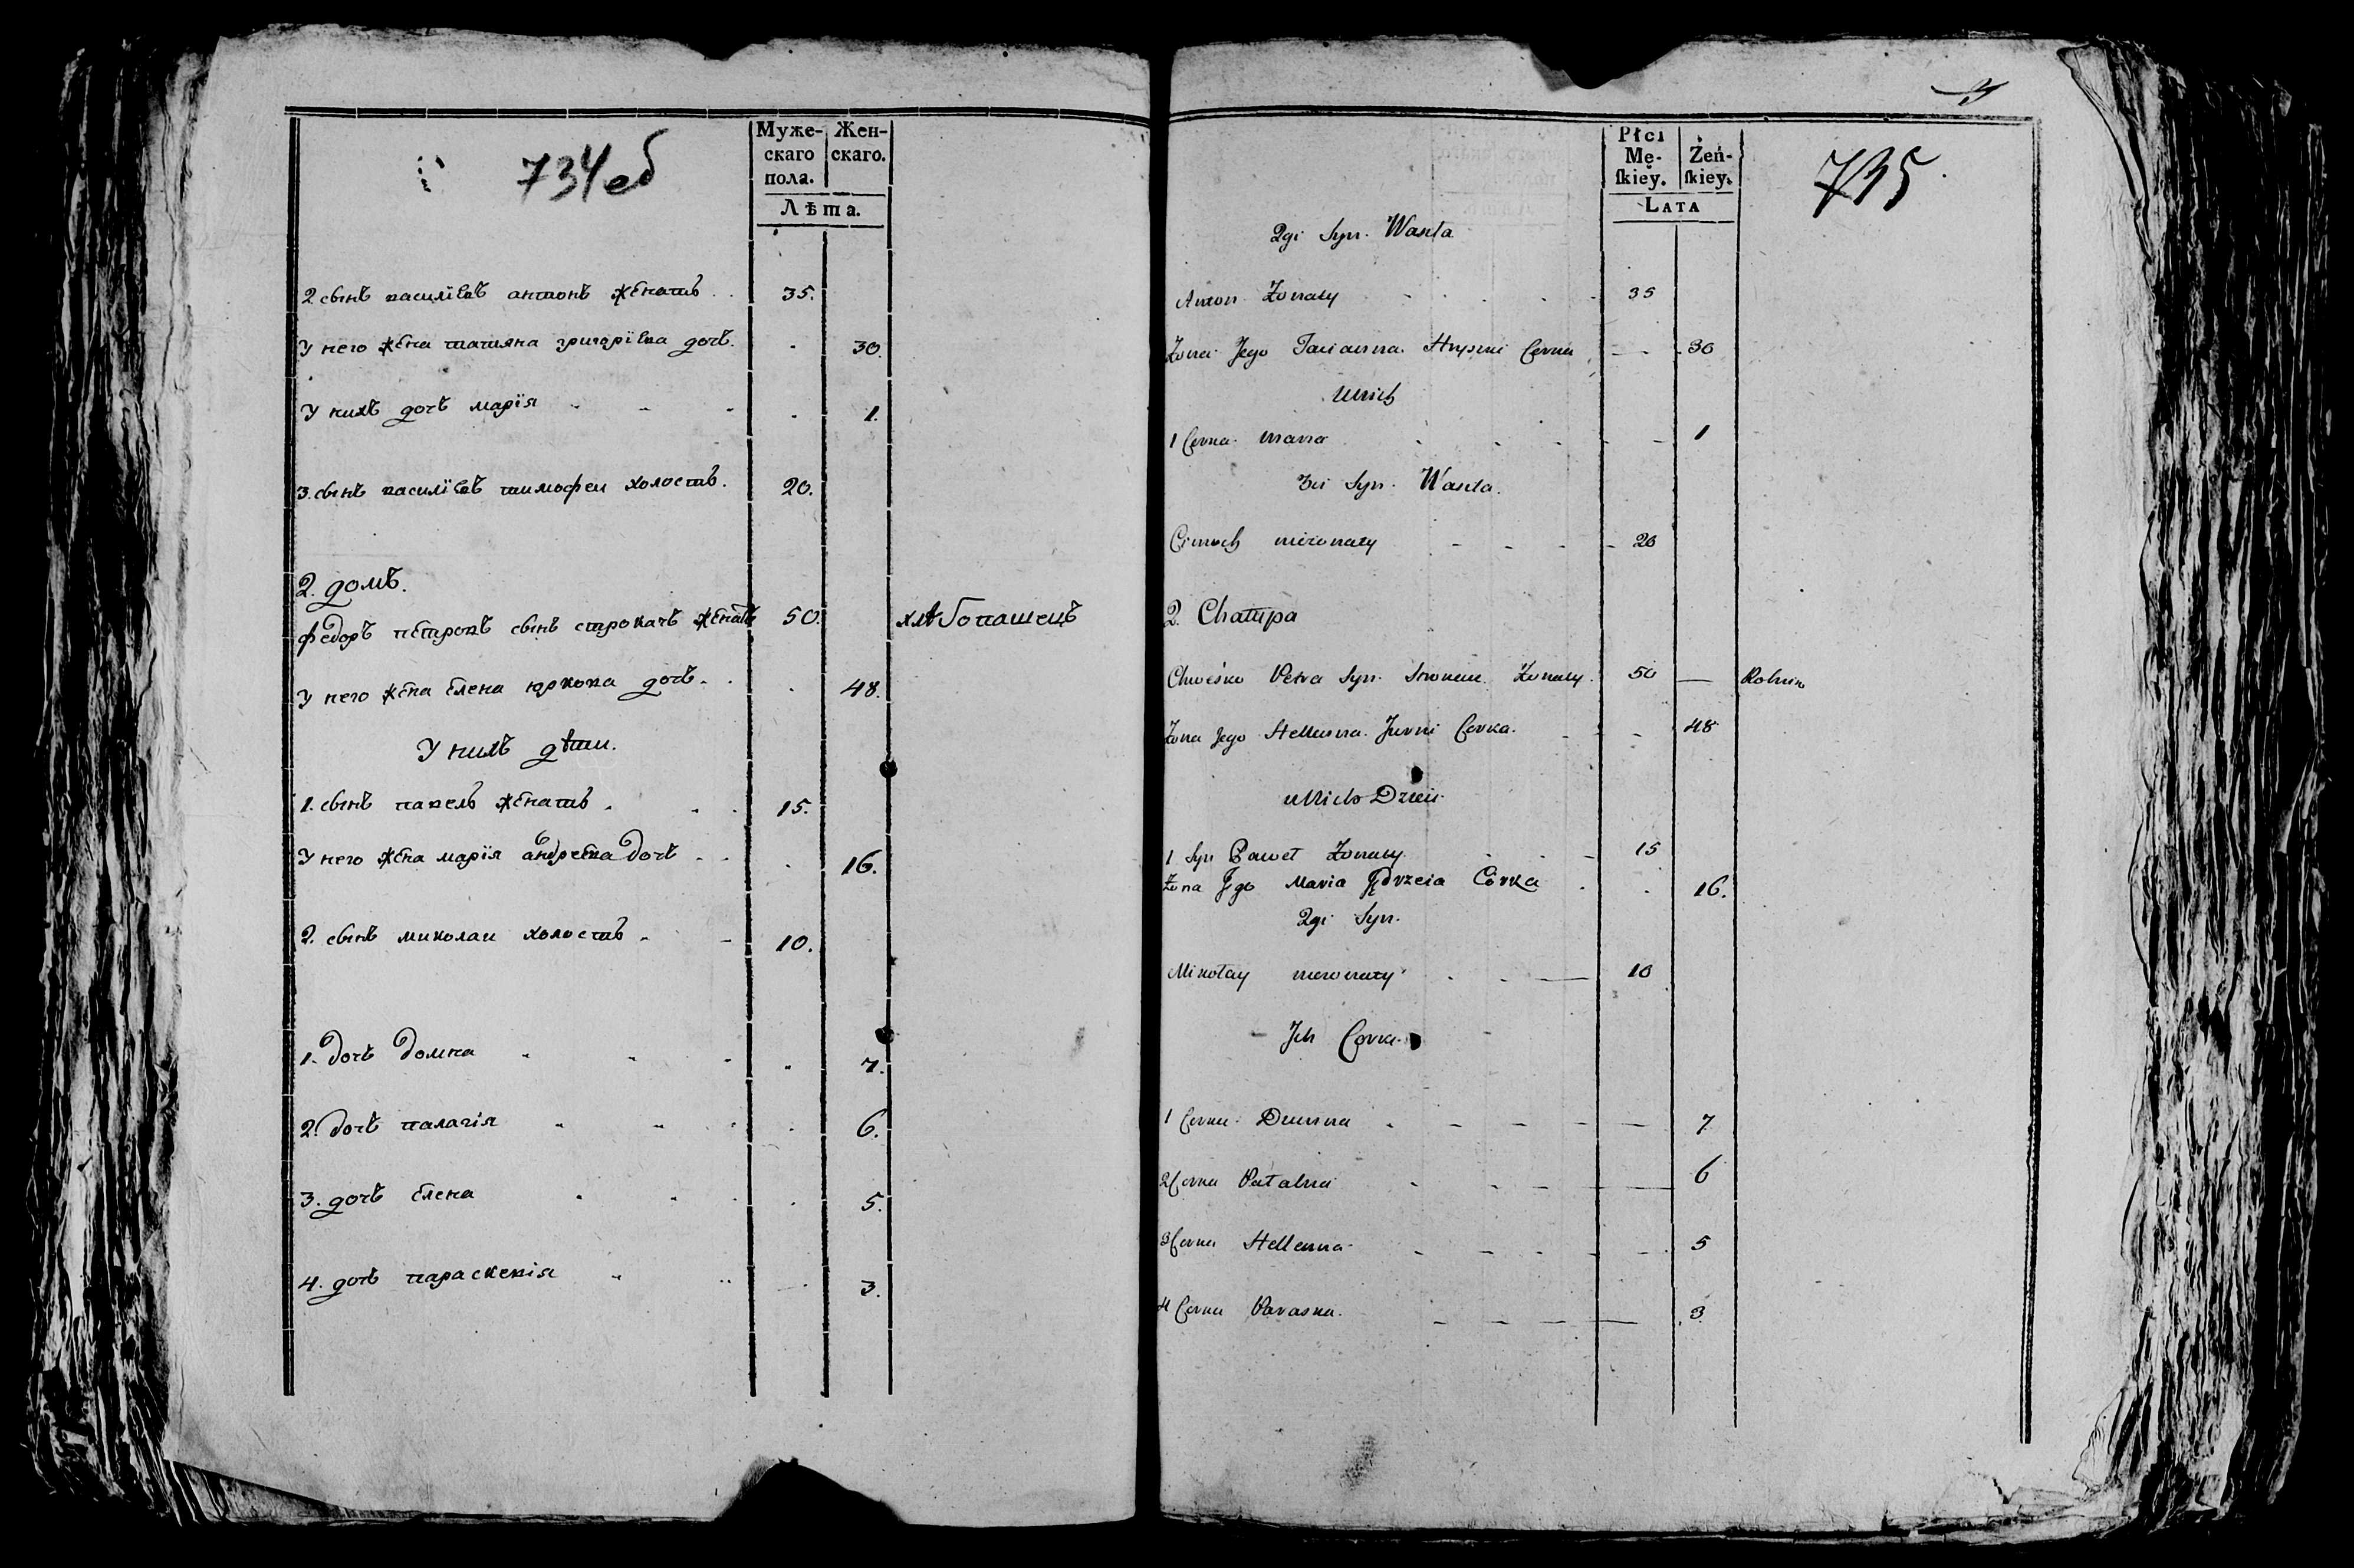 734 об
Муже-
скаго
пола.
Жен-
скаго.
Лѣта.
2 сынъ василіевъ антонъ женатъ . . 35.
У него жена татяна григоріева дочъ. . 30.
У нихъ дочъ марія . . . . 1.
3. сынъ василіевъ тимофеи холостъ. 20.
2. домъ.
федоръ петровъ сынъ строкачъ женатъ 50. хлѣбопашецъ
У него жена елена юркова дочъ. . . 48.
У нихъ дѣти.
1. сынъ павелъ женатъ . . . 15.
У него жена марія андреева дочъ . . . 16.
2. сынъ миколаи холостъ . - 10.
1. дочъ домна . . . . 7.
2. дочъ палагія . . . . 6.
3. дочъ елена . . . . 5.
4. дочъ параскевія . . . 3.
735
Płci
Mę-
ſkiey.
Żeń-
ſkiey.
LATA
2gi Syn Wasila
Anton Zonaty . . . . 35
Zona Jego Tacianna Corka 30
Unich
1 Corka maria . . . 1
3ci Syn Wasila.
Cimoch niezonaty - - - 20
2. Chałupa
Chwéśko Petra Syn Zonaty. 50 — Rolnik
Zona Jego Hellenna Jurki Corka. - - 48
uNich Dzieci
1 Syn Paweł Zonaty. . . - 15
Zona Jego Maria Jędrzeia Córka . . 16.
2gi Syn.
Mikołay niezonaty . . — 10
Jch Corka
1 Corka Dumna . - - - — 7
2 Corka Pałahia - - - — 6
3 Corka Hellenna - - - - - 5
4 Corka Paraska. - - - — 3